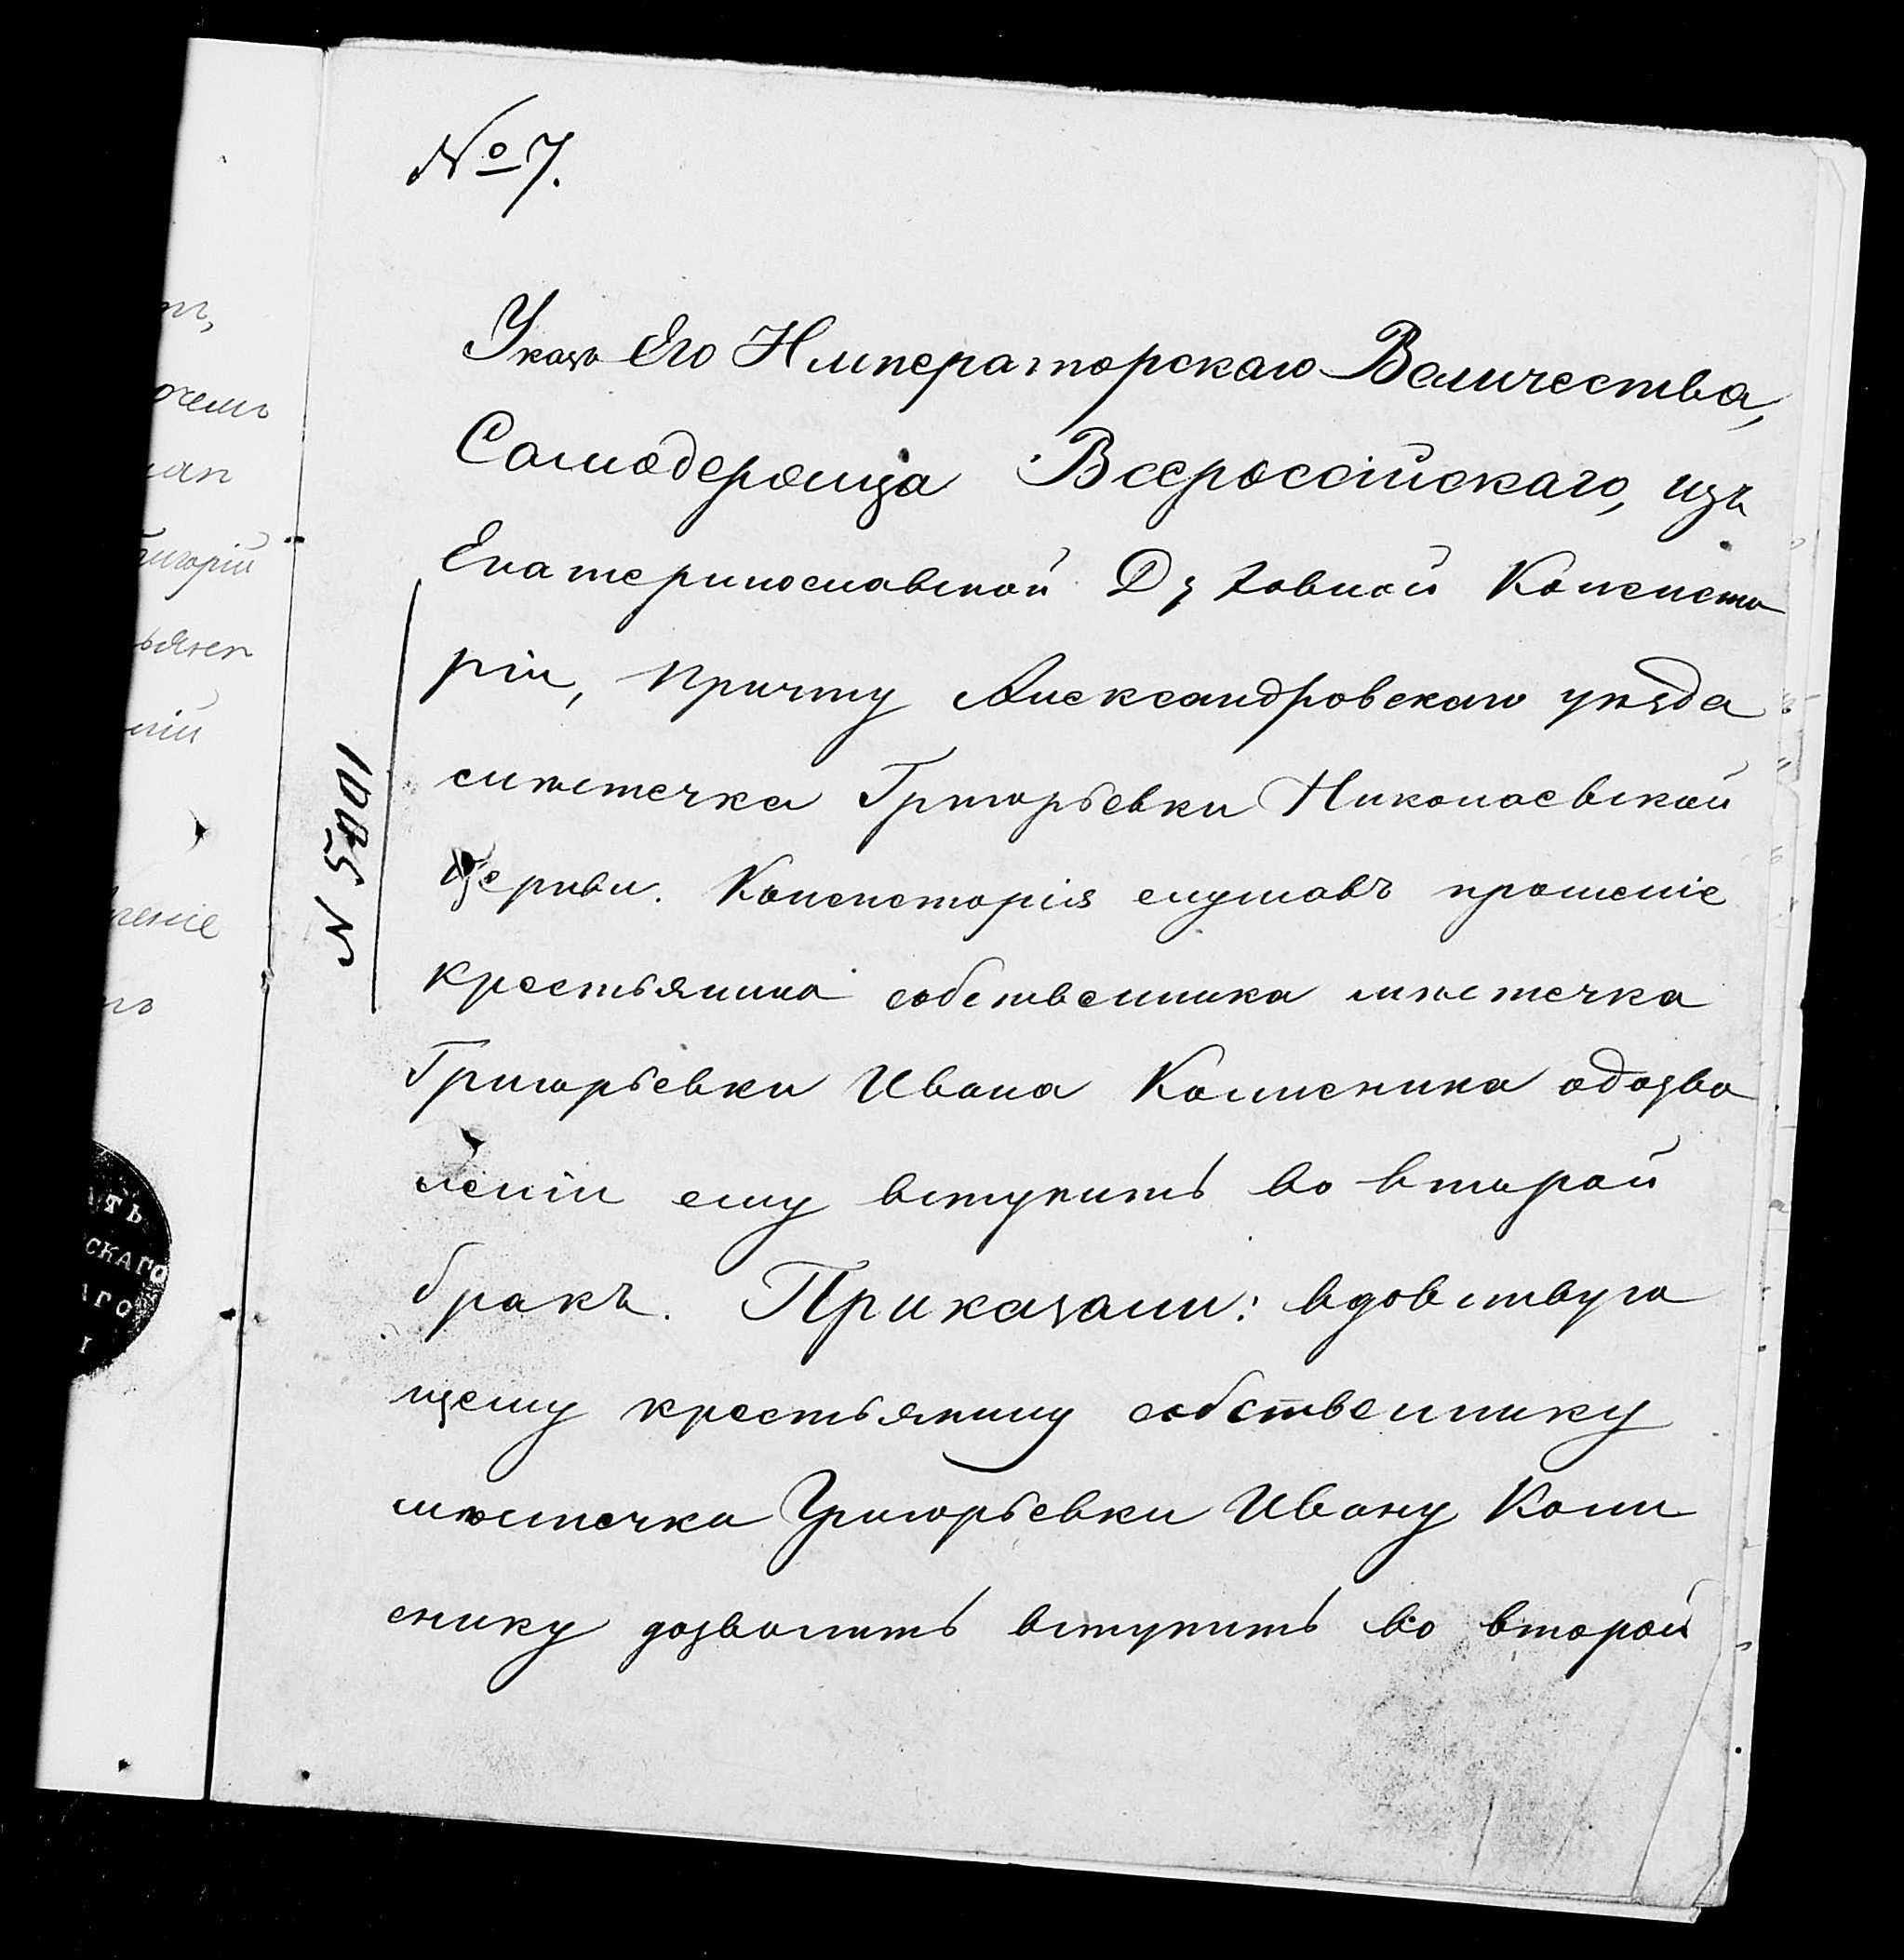 № 7.
Указъ Его Императорскаго Величества,
Самодержца Всероссійскаго, изъ
Екатеринославской Духовной Консисто
ріи, причту Александровскаго уѣзда
мѣстечка Григорьевки Николаевской
Церкви. Консисторія слушавъ прошеніе
крестьянина собственника мѣстечка
Григорьевки Ивана одозво
леніи ему вступить во второй
бракъ. Приказали: вдовствую
щему крестьянину собственнику
мѣстечка Григорьевки Ивану
дозволить вступить во второй
N 5001
ригорій
еніе
АТЬ
СКАГО
АГО
І